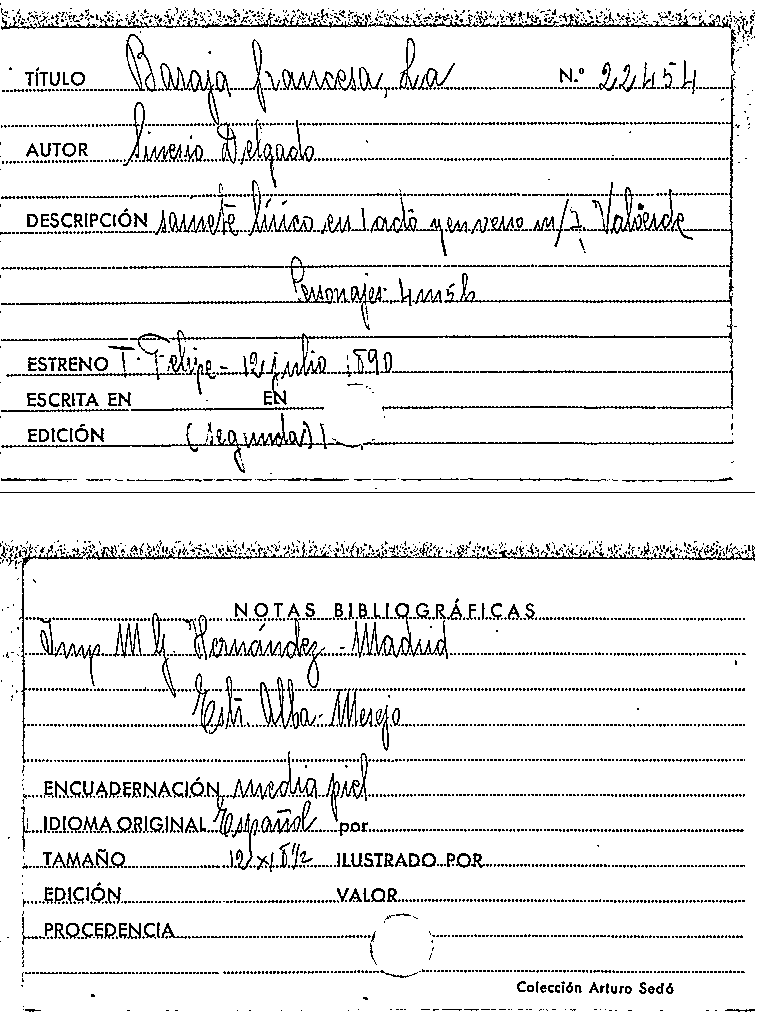 TÍTULO Baraja francesa, La N.º 22454
AUTOR Sinesio Delgado
DESCRIPCIÓN sainete lírico en 1 acto y en verso m/ J. Valverde
Personajes: 4m5h
ESTRENO T. Felipe - 12 julio 1890
ESCRITA EN EN
EDICIÓN (segunda)
NOTAS BIBLIOGRÁFICAS
Imp M G. Hernández - Madrid
Estr. Alba - Mesejo
ENCUADERNACIÓN media piel
IDIOMA ORIGINAL Español por
TAMAÑO 12 x 18 1/2 ILUSTRADO POR
EDICIÓN VALOR
PROCEDENCIA
Colección Arturo Sedó